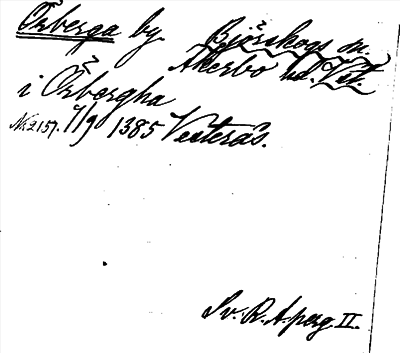 Örberga by. Björskogs sn.
Åkerbo hd. Vstl.
i Örbergha
N:2157. 7/9 1385 Vesterås.
Sv. R. A. perg. II.